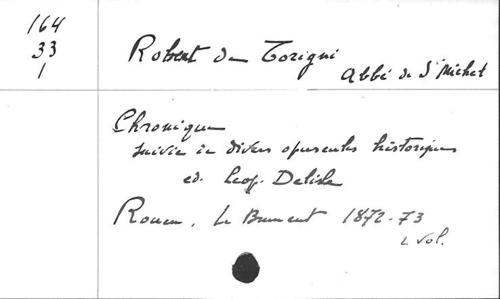 164
33
1
Robert de Torigni
Abbé de St Michel
Chronique
suivie de divers opuscules historiques
ed. Leop. Delisle
Rouen, Le Brument 1872-73
2 vol.